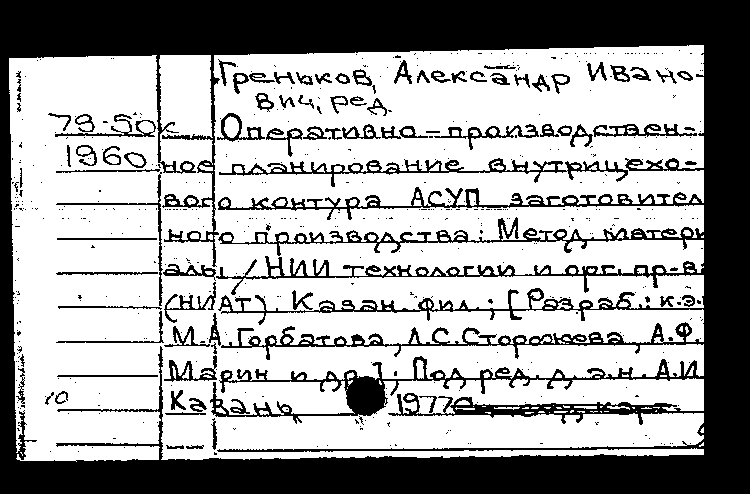 Греньков, Александр Ивано-
вич, ред.
79-50к Оперативно-производствен-
1960 ное планирование внутрицехо-
вого контура АСУП заготовител
ного производства: Метод. матери
алы / НИИ технологии и орг. пр-ва
(НИАТ). Казан. фил.; [Разраб.: к.э.
М.А. Горбатова, Л.С. Сторожева, А.Ф.
Марин и др.]; Под ред. д.э.н. А.И
10 Казань, 1977